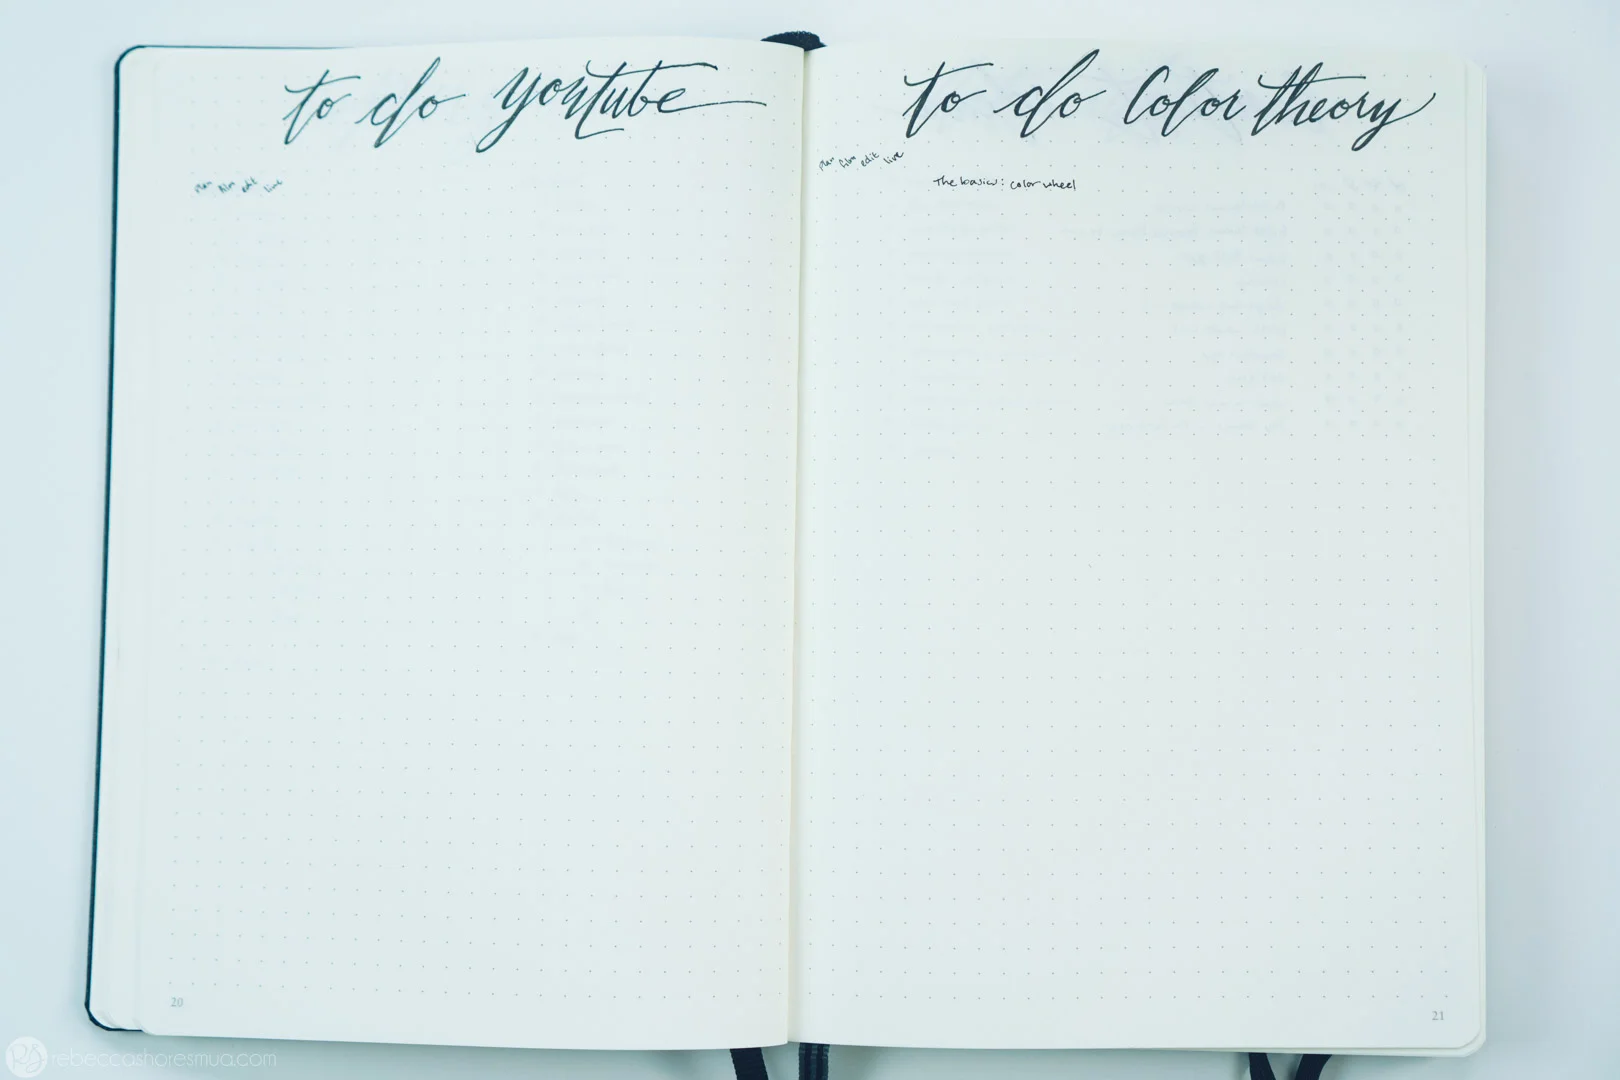 to do youtube
plan film edit live
20
to do Color theory
plan film edit live
The basics: color wheel
21
RS rebeccashoresmua.com